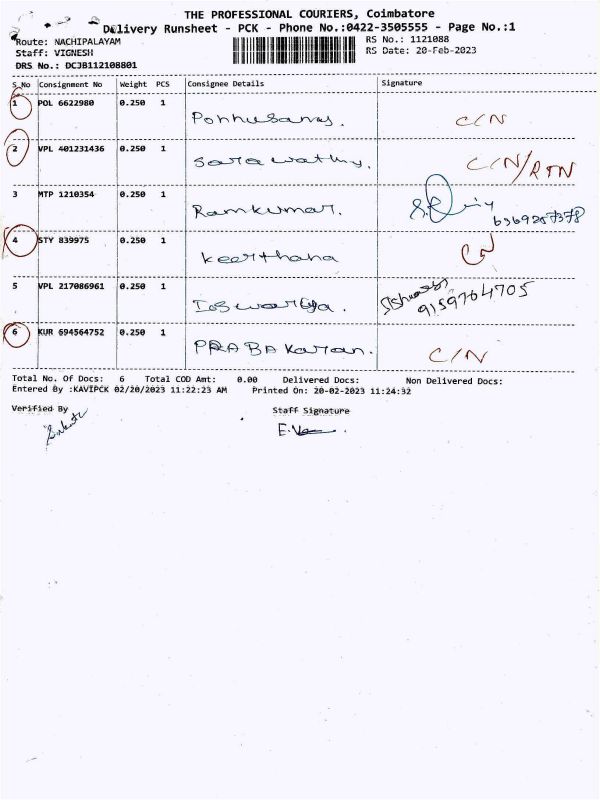 THE PROFESSIONAL COURIERS, Coimbatore
Delivery Runsheet - PCK - Phone No.:0422-3505555 - Page No.:1
Route: NACHIPALAYAM
Staff: VIGNESH
DRS No.: DCJB112108801
RS No.: 1121088
RS Date: 20-Feb-2023
S_No Consignment No Weight PCS Consignee Details Signature
1 POL 6622980 0.250 1 Ponnusamy. C/N
2 VPL 401231436 0.250 1 Sarawathy. C/N/RTN
3 MTP 1210354 0.250 1 Ramkumar. 6369257378
4 STY 839975 0.250 1 Keerthana CN
5 VPL 217086961 0.250 1 Ioswarya. 9159764705
6 KUR 694564752 0.250 1 PRABAKaran. C/N
Total No. Of Docs: 6 Total COD Amt: 0.00 Delivered Docs: Non Delivered Docs:
Entered By :KAVIPCK 02/20/2023 11:22:23 AM Printed On: 20-02-2023 11:24:32
Verified By Staff Signature